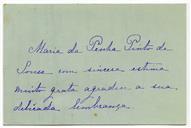 Maria da Penha Pinto de
Sousa com sincera estima
muito grata agradece a sua
delicada lembrança.